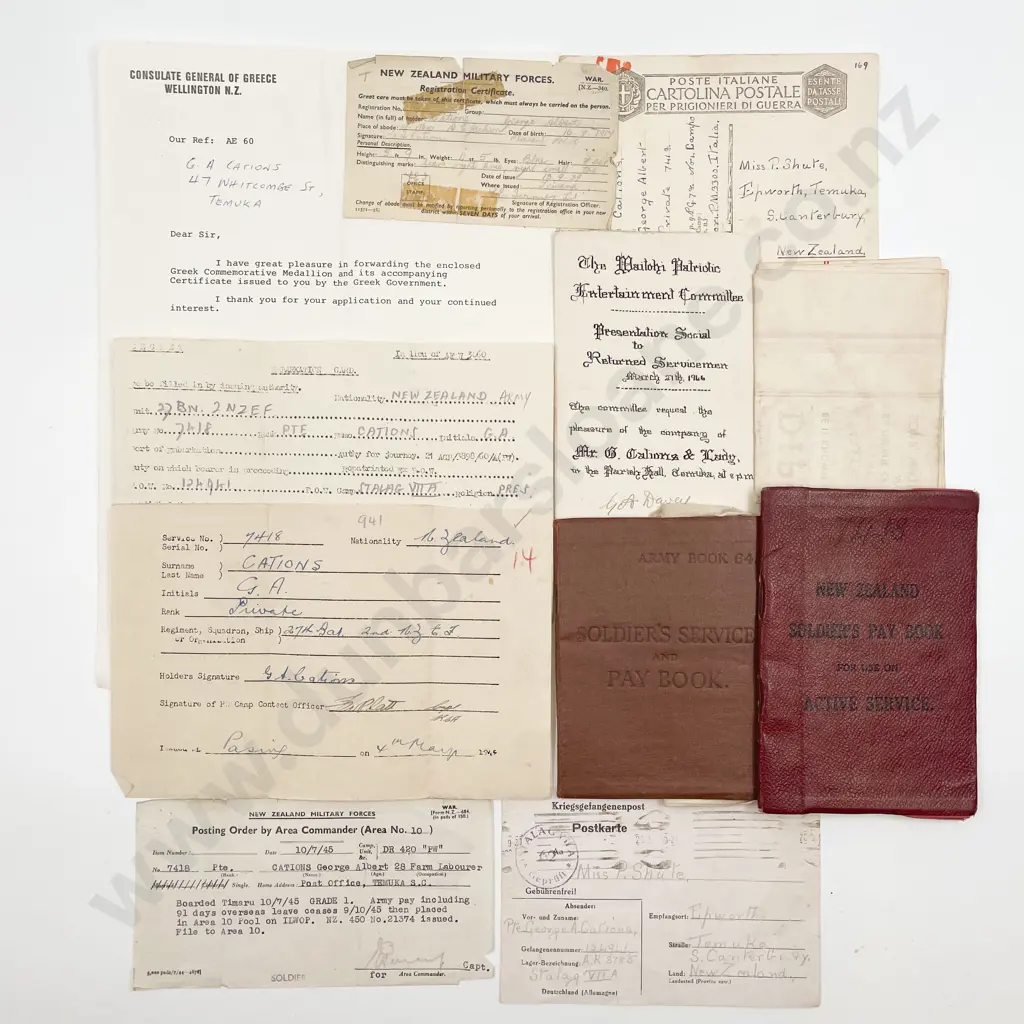 CONSULATE GENERAL OF GREECE
WELLINGTON N.Z.
Our Ref: AE 60
G. A CATIONS
47 WHITCOMBE ST,
TEMUKA
Dear Sir,
I have great pleasure in forwarding the enclosed
Greek Commemorative Medallion and its accompanying
Certificate issued to you by the Greek Government.
I thank you for your application and your continued
interest.
NEW ZEALAND MILITARY FORCES.
WAR.
[N.Z.—340.
Registration Certificate.
Great care must be taken of this certificate, which must always be carried on the person.
Registration No.
Group:
Name (in full) of holder: Cations George Albert
Place of abode:
Date of birth:
Signature:
Personal Description.
Height: 5 ft. 9 in. Weight: 5 lb. Eyes: Blue Hair:
Distinguishing marks:
Date of issue:
Where issued
OFFICE
STAMP.
Signature of Registration Officer.
Change of abode must be notified by reporting personally to the registration office in your new
district within SEVEN DAYS of your arrival.
169
POSTE ITALIANE
CARTOLINA POSTALE
PER PRIGIONIERI DI GUERRA
ESENTE
DA TASSE
POSTALI
Cations,
George Albert
Private 7418.
P.M. 3300, Italia.
Miss P. Shute,
Epworth, Temuka,
S. Canterbury,
New Zealand,
The Waitohi Patriotic
Entertainment Committee
Presentation Social
to
Returned Servicemen
The committee request the
pleasure of the company of
Mr. G. Cations & Lady,
in the Parish Hall, Temuka, at 8 pm
G A Davey
In lieu of AF 7 3,60.
to be filled in by issuing authority.
Nationality NEW ZEALAND ARMY
Unit. 27 BN. 2 NZEF
Army No. 7418 Rank PTE Name CATIONS Initials G.A
Port of embarkation
Duty on which bearer is proceeding Repatriated ex P.O.W.
P.O.W. No. 124941 P.O.W. Camp STALAG VII A Religion PRES.
941
14
Service No. )
Serial No. ) 7418
Nationality N. Zealand
Surname
Last Name CATIONS
Initials G. A.
Rank Private
Regiment, Squadron, Ship
or Organization 27th Bat. 2nd N.Z.E.F.
Holders Signature G A Cations
Signature of PW Camp Contact Officer
Issued at Pasing on 4th May 194
ARMY BOOK 64
SOLDIER'S SERVICE
AND
PAY BOOK.
NEW ZEALAND
SOLDIER'S PAY BOOK
FOR USE ON
ACTIVE SERVICE.
NEW ZEALAND MILITARY FORCES
WAR.
[Form N.Z.—484.
(In pads of 100.)
Posting Order by Area Commander (Area No. 10 )
Item Number: Date 10/7/45 Camp, Unit, &c. DR 420 "PW"
No. 7418 Pte. CATIONS George Albert 28 Farm Labourer
(Rank) (Name) (Age) (Occupation)
Single. Home Address: Post Office, TEMUKA S.C.
Boarded Timaru 10/7/45 GRADE 1. Army pay including
91 days overseas leave ceases 9/10/45 then placed
in Area 10 Pool on ILWOP. NZ. 450 No.21374 issued.
File to Area 10.
Capt.
for Area Commander.
SOLDIER
Kriegsgefangenenpost
Postkarte
STALAG VII A
Geprüft
Miss P. Shute,
Gebührenfrei!
Absender:
Vor- und Zuname:
Pte George A Cations,
Gefangenennummer: 124941
Lager-Bezeichnung:
Stalag VII A
Deutschland (Allemagne)
Empfangsort: Epworth
Straße: Temuka,
S. Canterbury,
Land: New Zealand,
Landesteil (Provinz usw.)